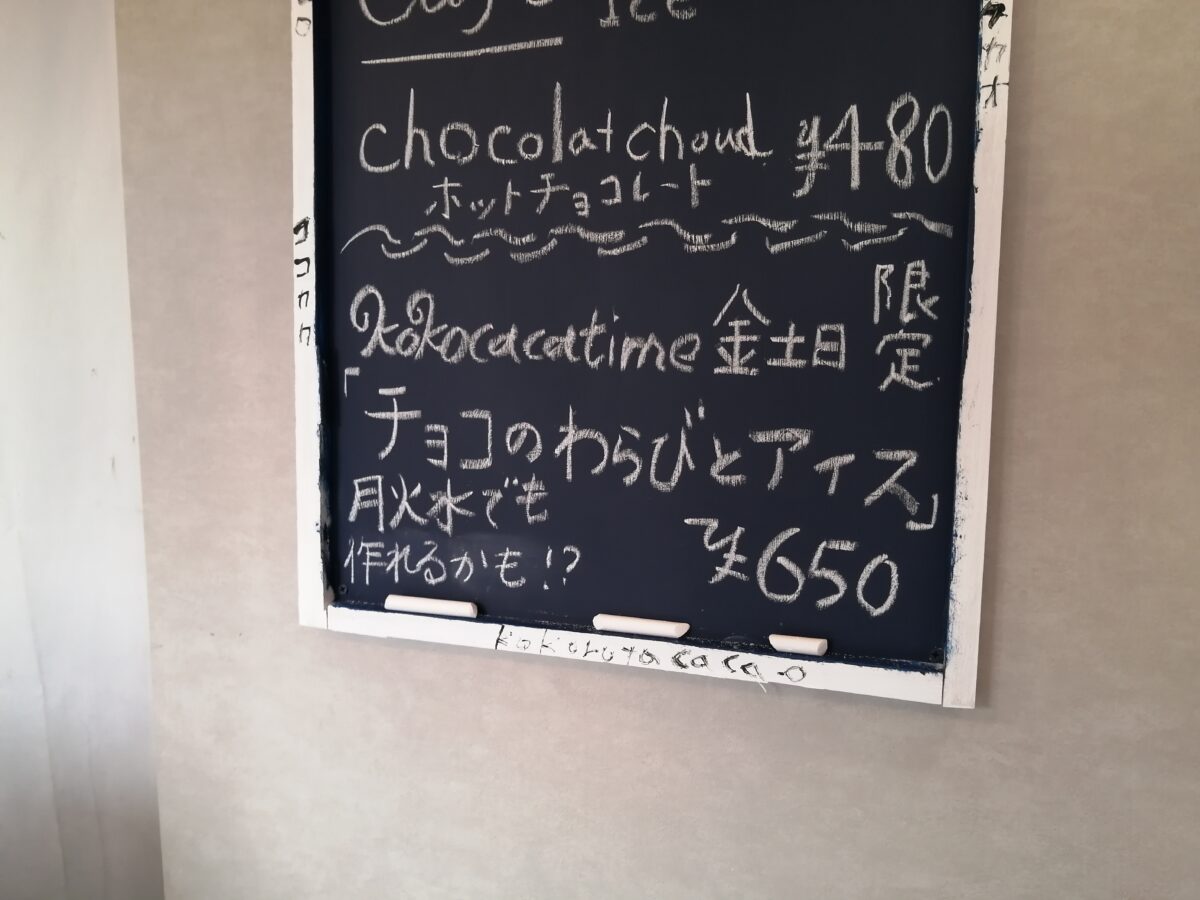 Ice
chocolat choud ¥480
ホットチョコレート
kokocacatime 金土日 限定
「チョコのわらびとアイス」
月火水でも
作れるかも!?
¥650
kokoruta cacao